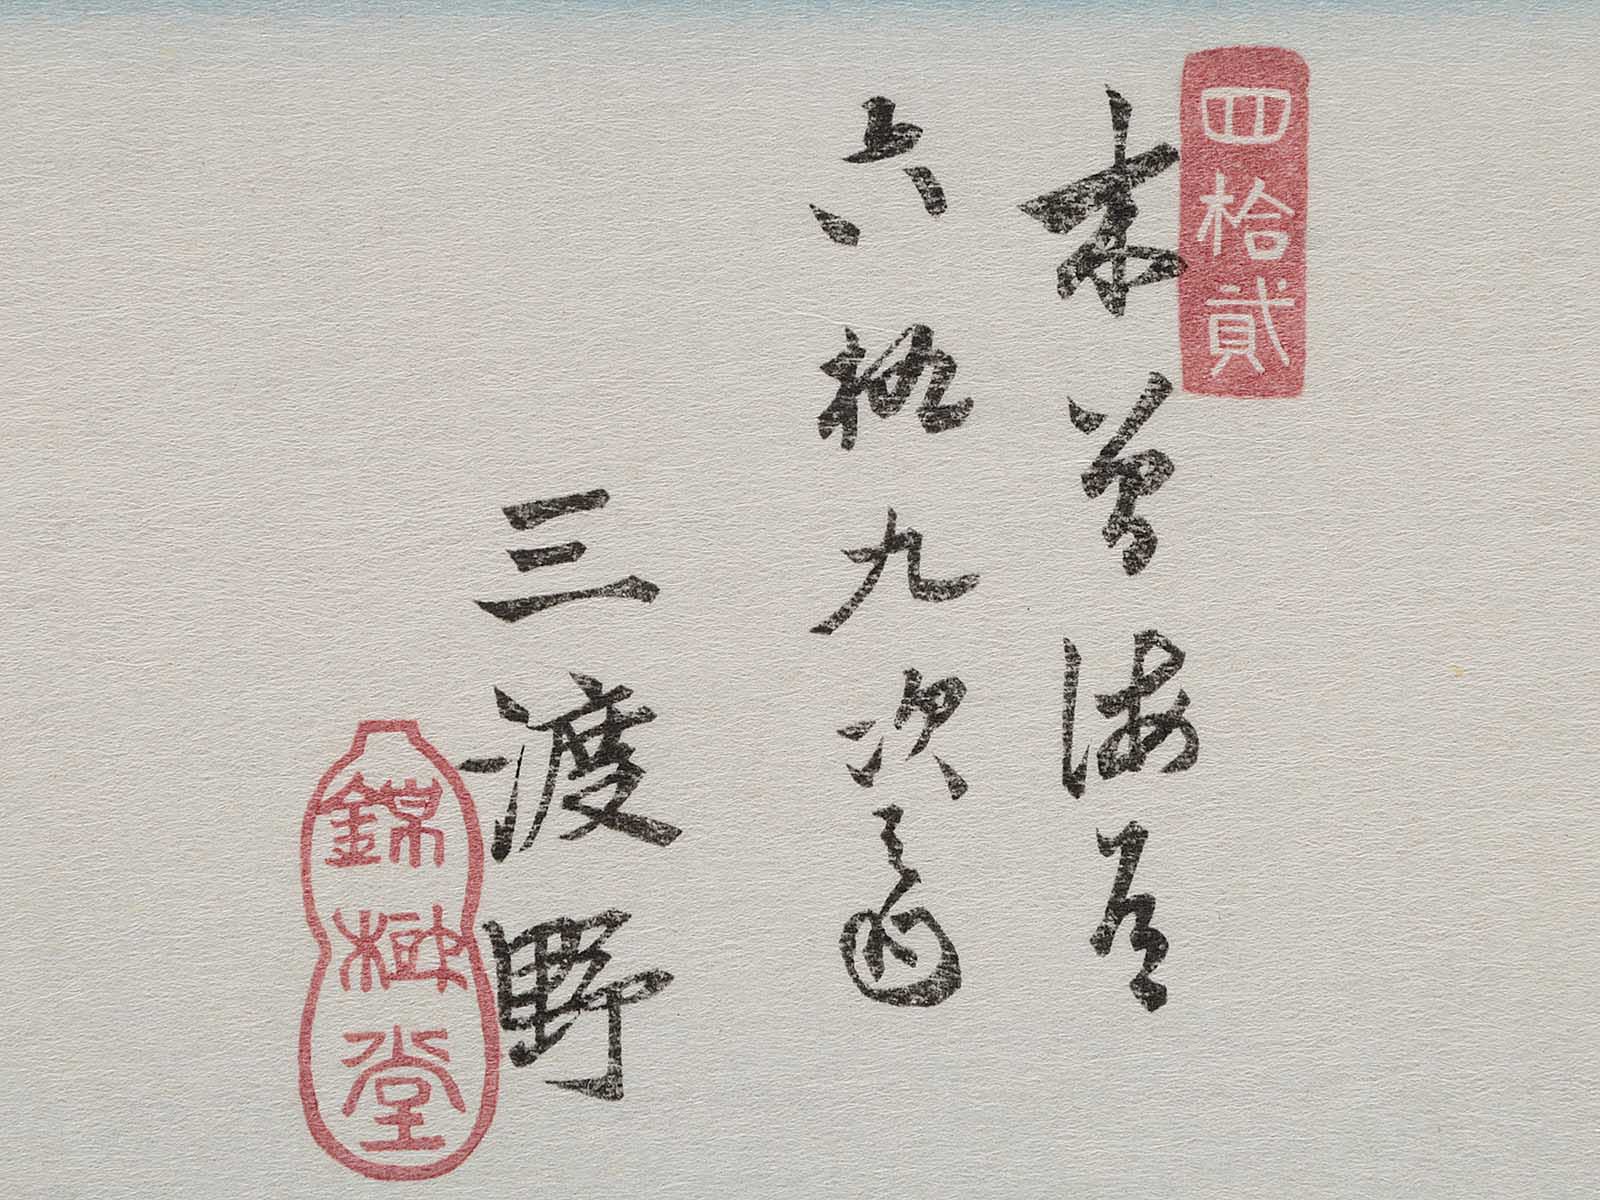 四拾貳
木曾海道
六拾九次之内
三渡野
錦樹堂